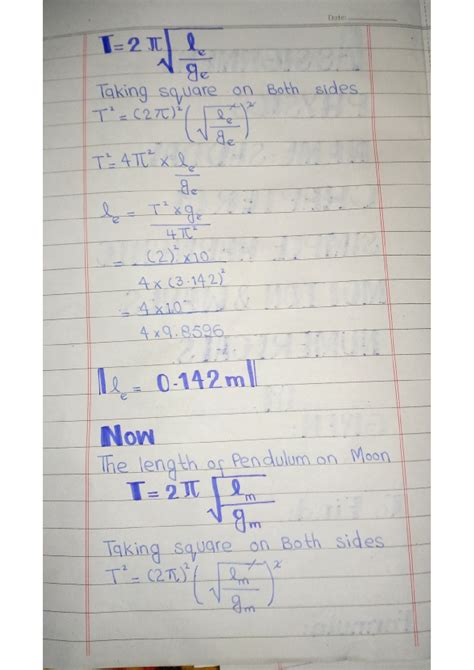 Date:
T=2π√(lₑ/gₑ)
Taking square on Both sides
T²=(2π)²(√(lₑ/gₑ))²
T²=4π²×lₑ/gₑ
lₑ = T²×gₑ/4π²
= (2)²×10/4×(3.142)²
= 4×10/4×9.8596
lₑ = 0.142m
Now
The length of Pendulum on Moon
T=2π√(lₘ/gₘ)
Taking square on Both sides
T²=(2π)²(√(lₘ/gₘ))²